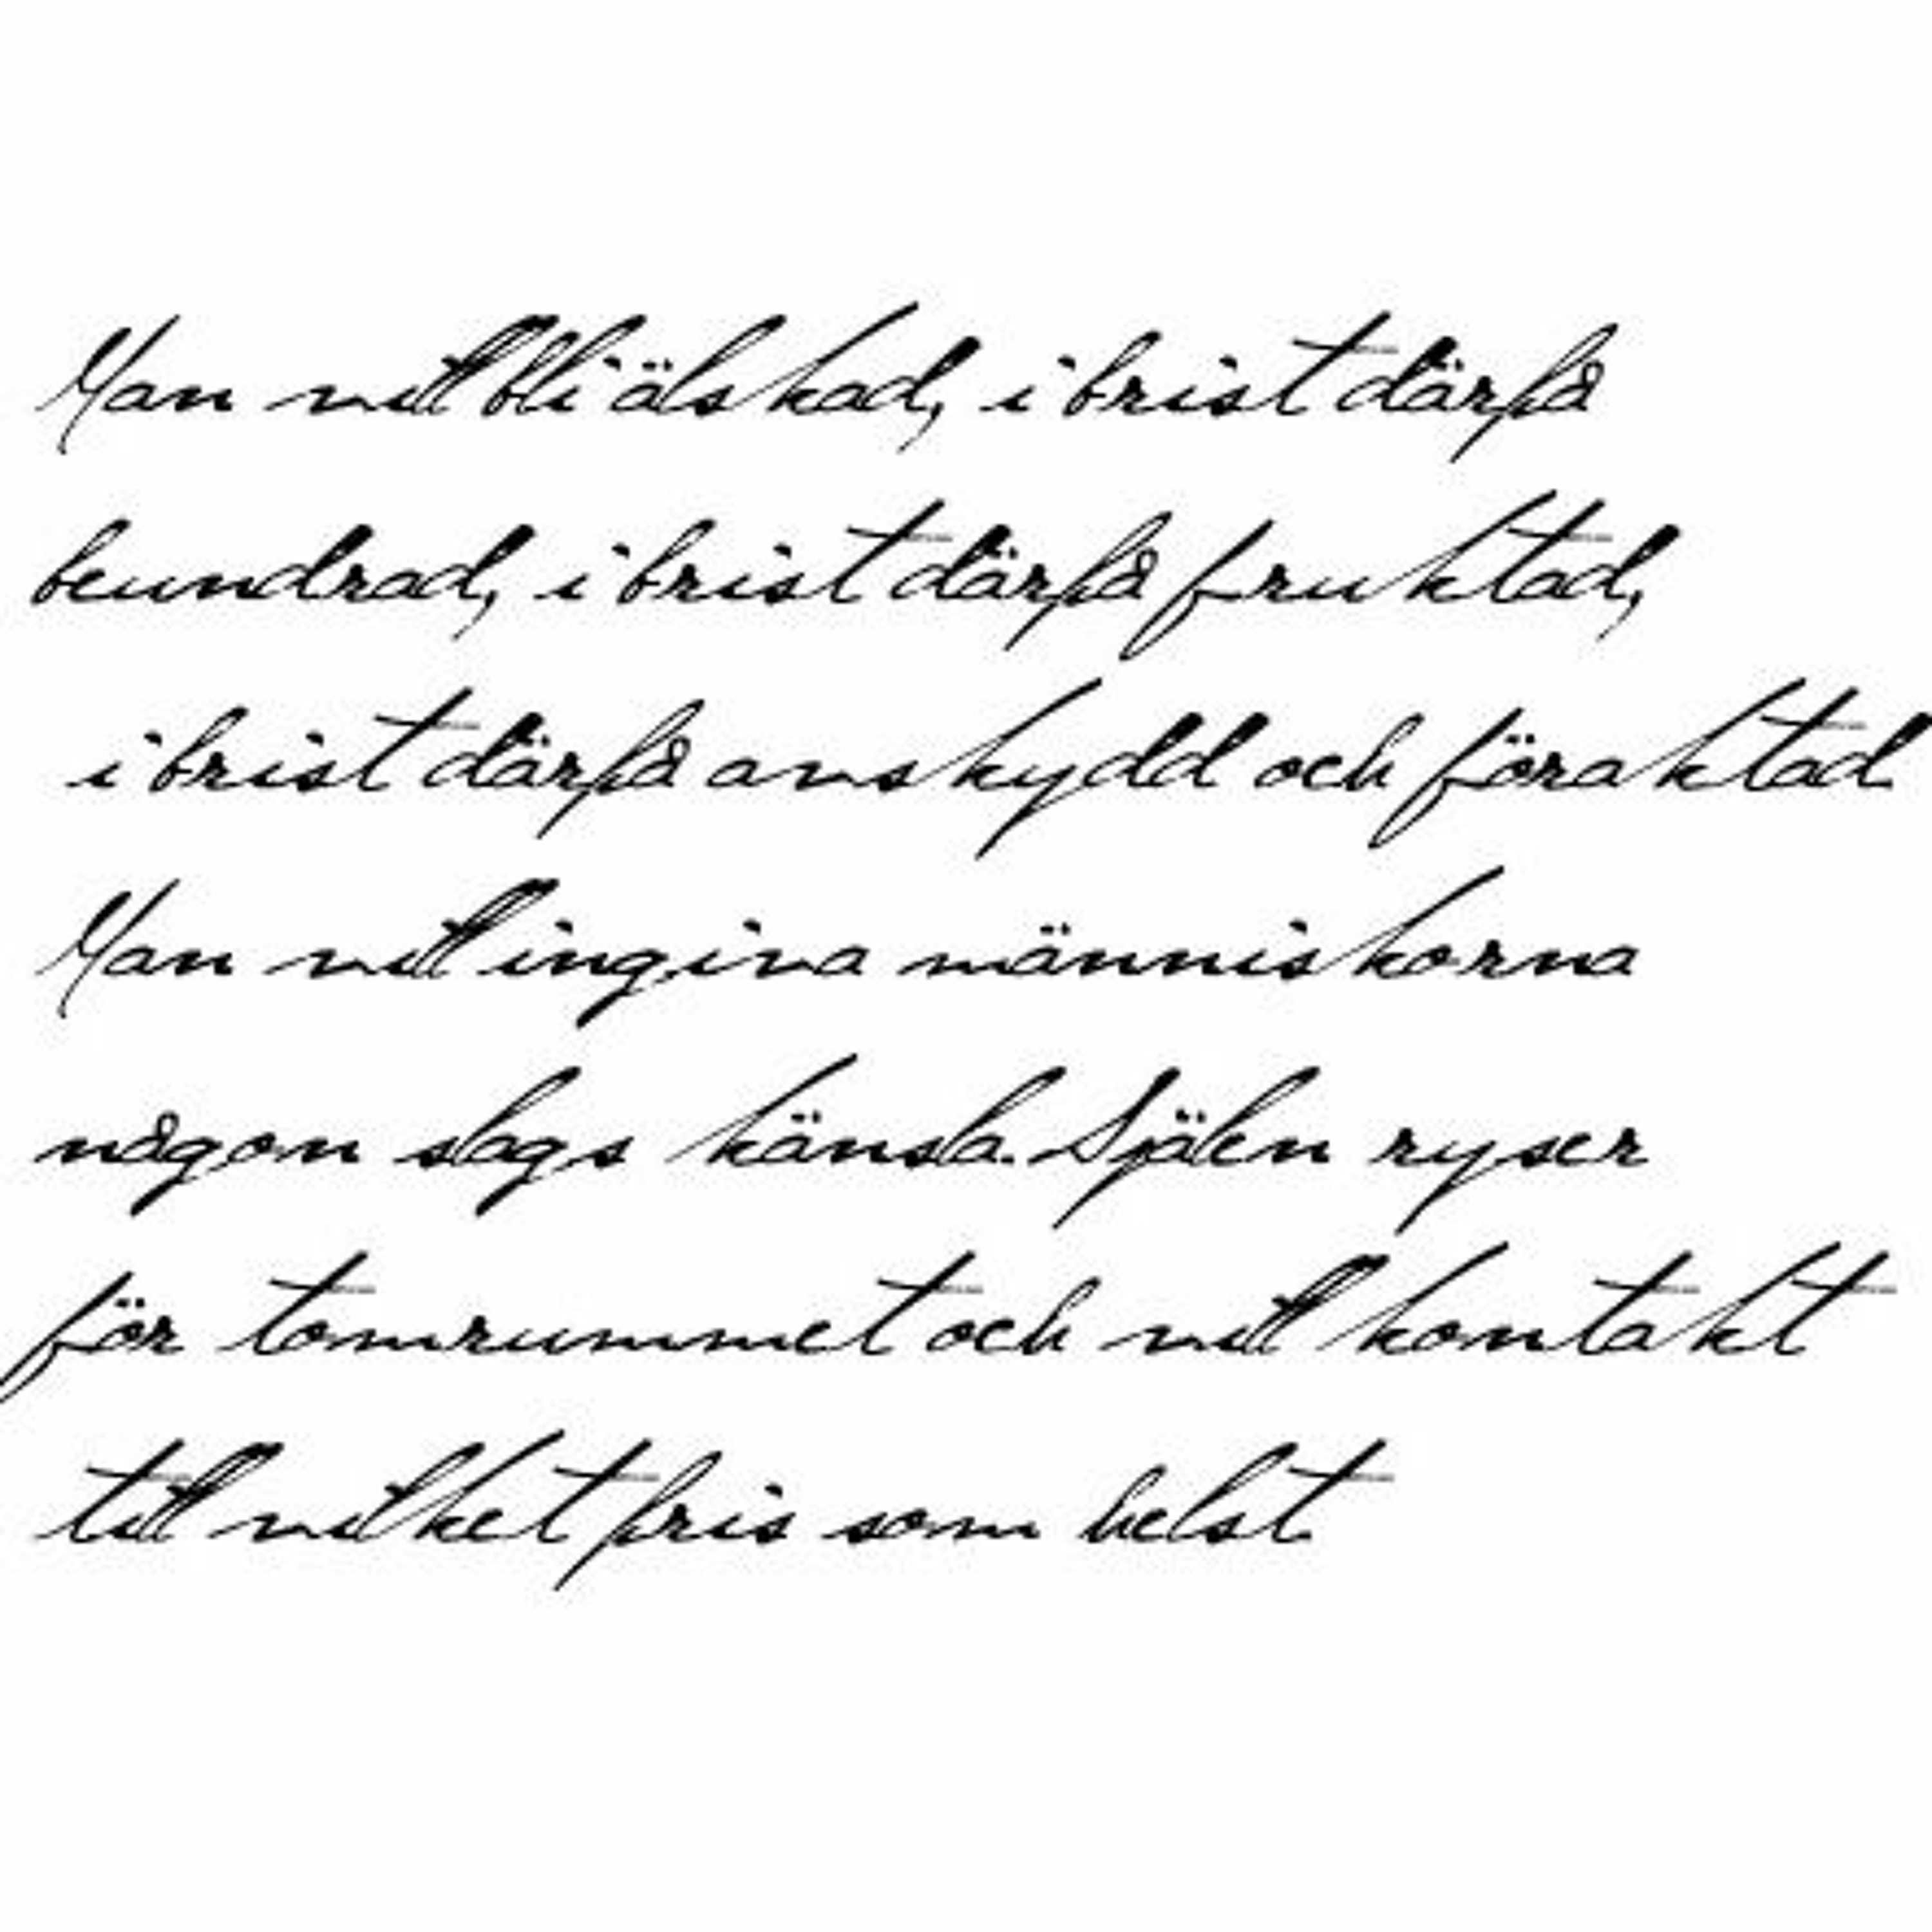 Man vill bli älskad, i brist därpå
beundrad, i brist därpå fruktad,
i brist därpå avskydd och föraktad
Man vill ingiva människorna
någon slags känsla. Själen ryser
för tomrummet och vill kontakt
till vilket pris som helst.